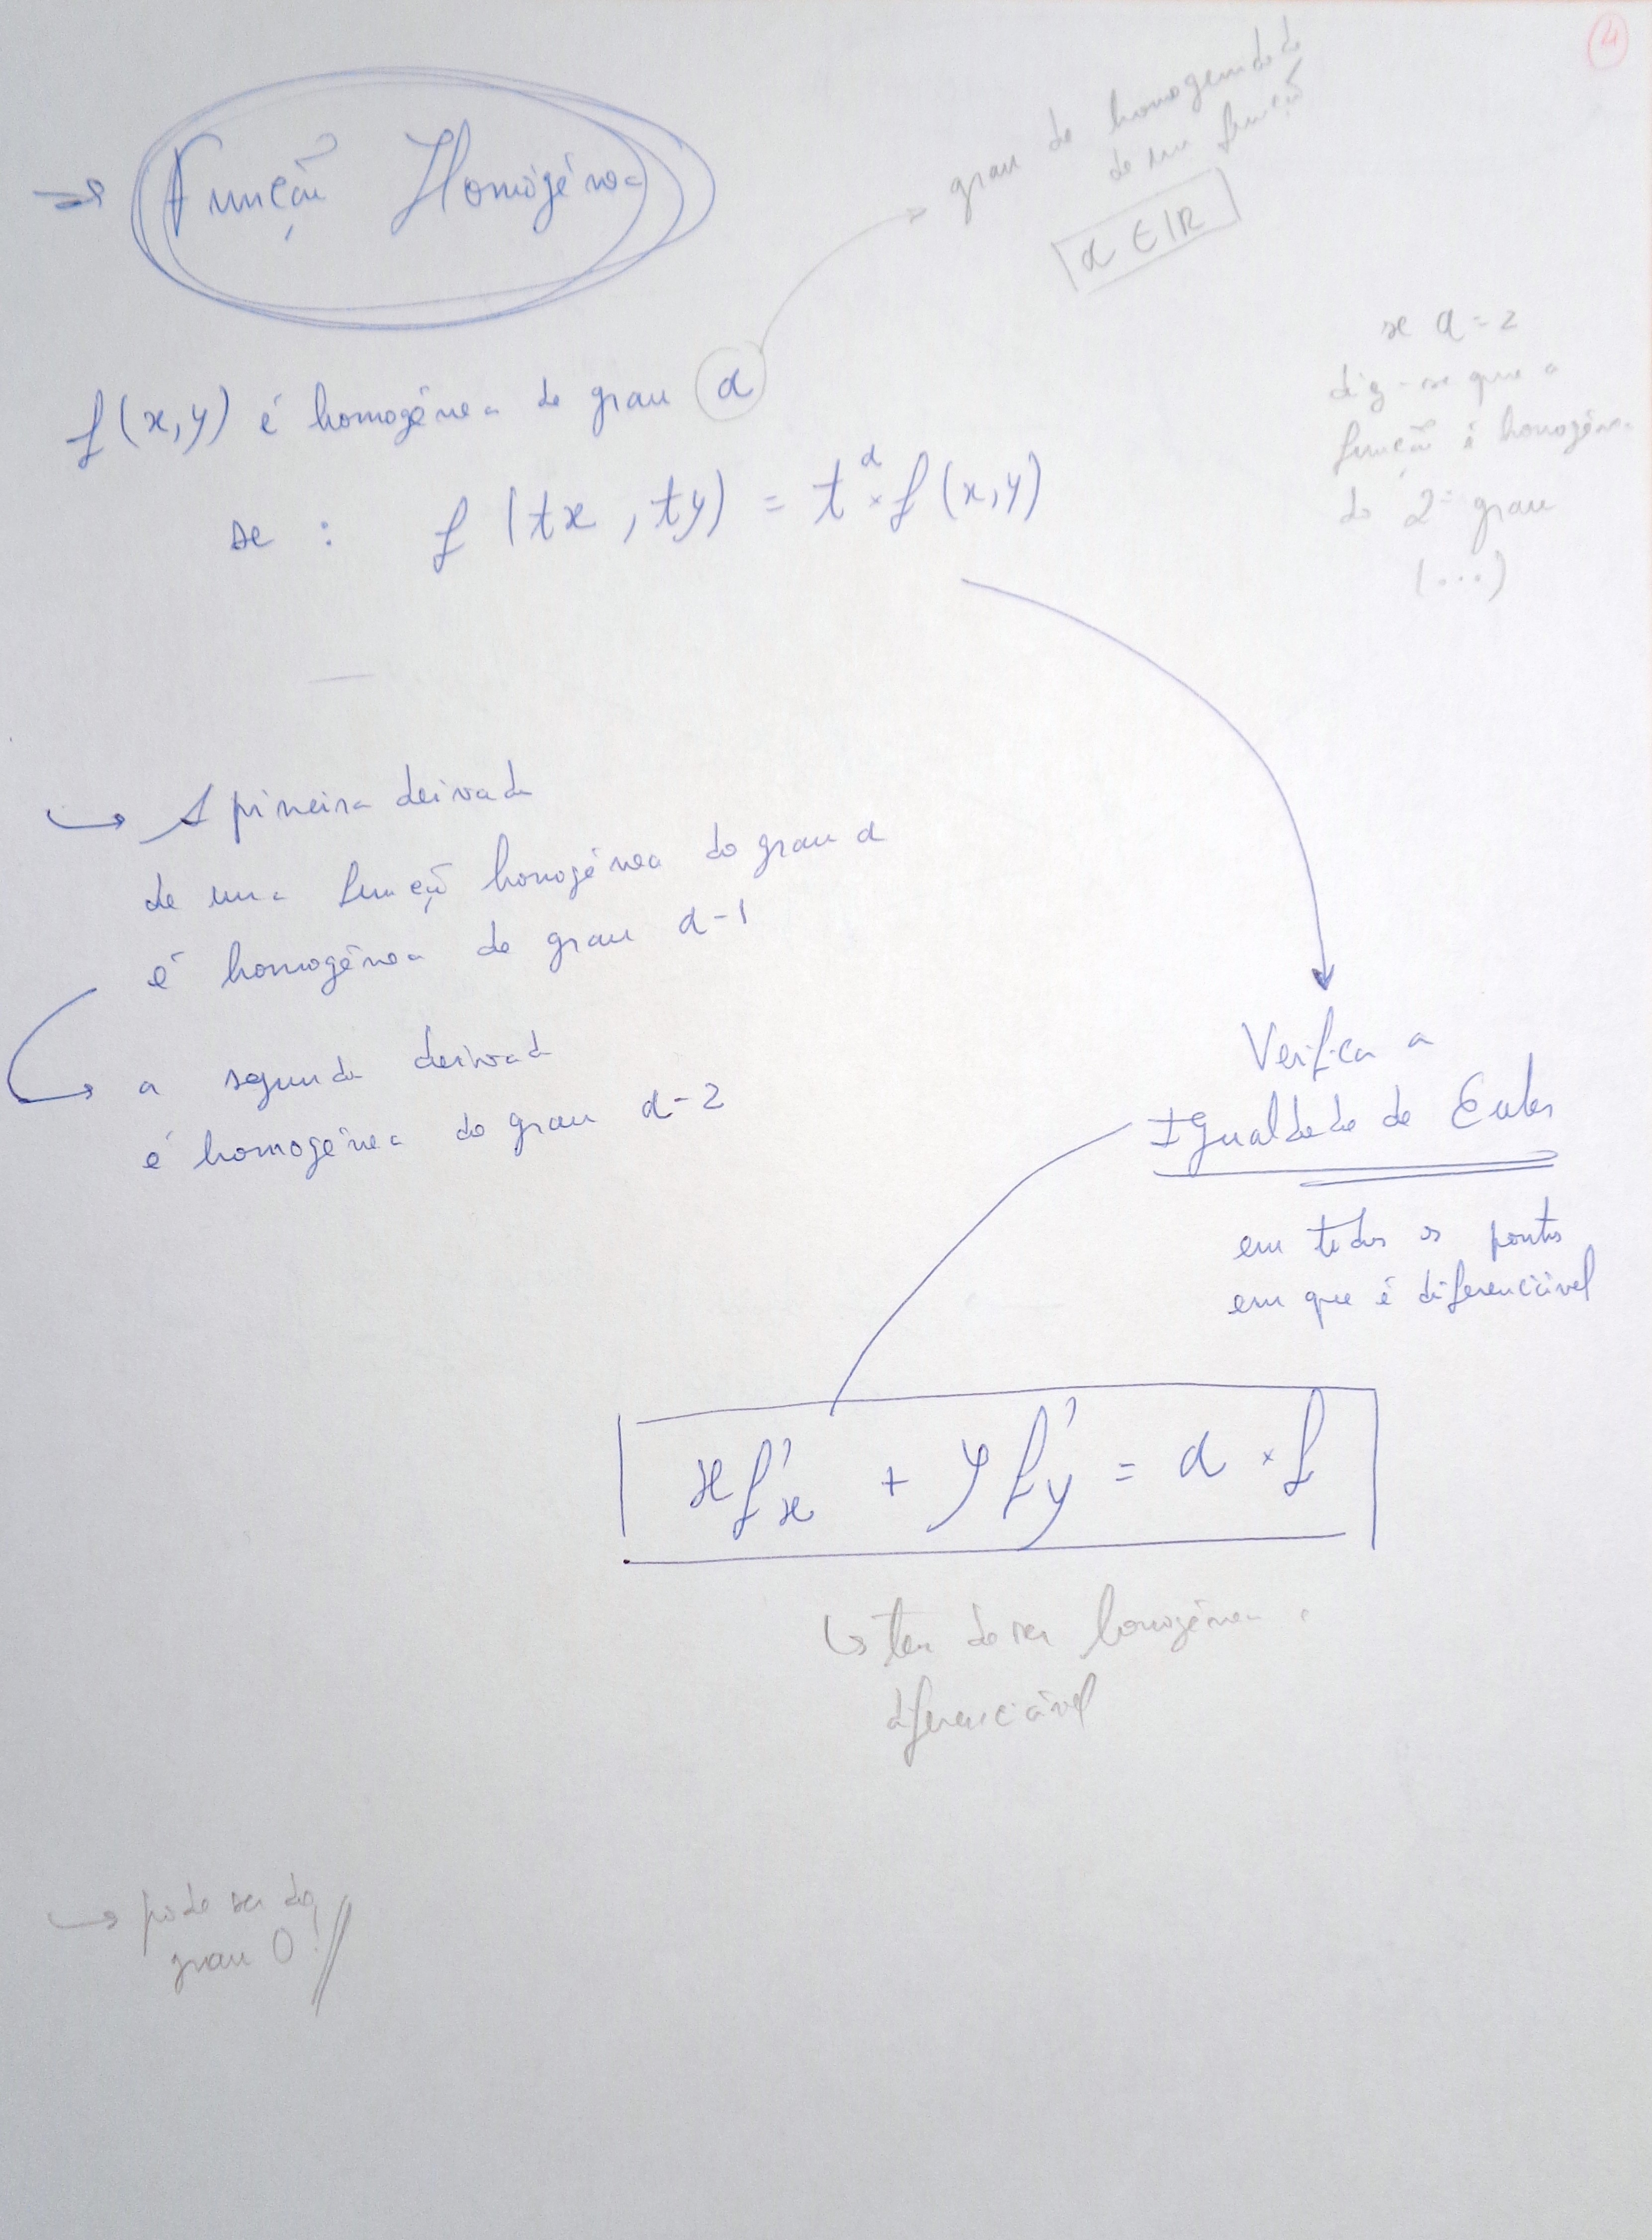 4
→ Função Homogénea
grau de homogeneidade
de uma função
α ∈ IR
f(x,y) é homogénea de grau α
se : f(tx, ty) = t^α × f(x,y)
se α = 2
diz-se que a
função é homogénea
do 2º grau
(...)
↳ A primeira derivada
de uma função homogénea do grau α
é homogénea de grau α-1
↳ a segunda derivada
é homogénea do grau α-2
Verifica a
Igualdade de Euler
em todos os pontos
em que é diferenciável
xf'x + yf'y = α × f
↳ tem de ser homogénea e
diferenciável
↳ pode ser de
grau 0!